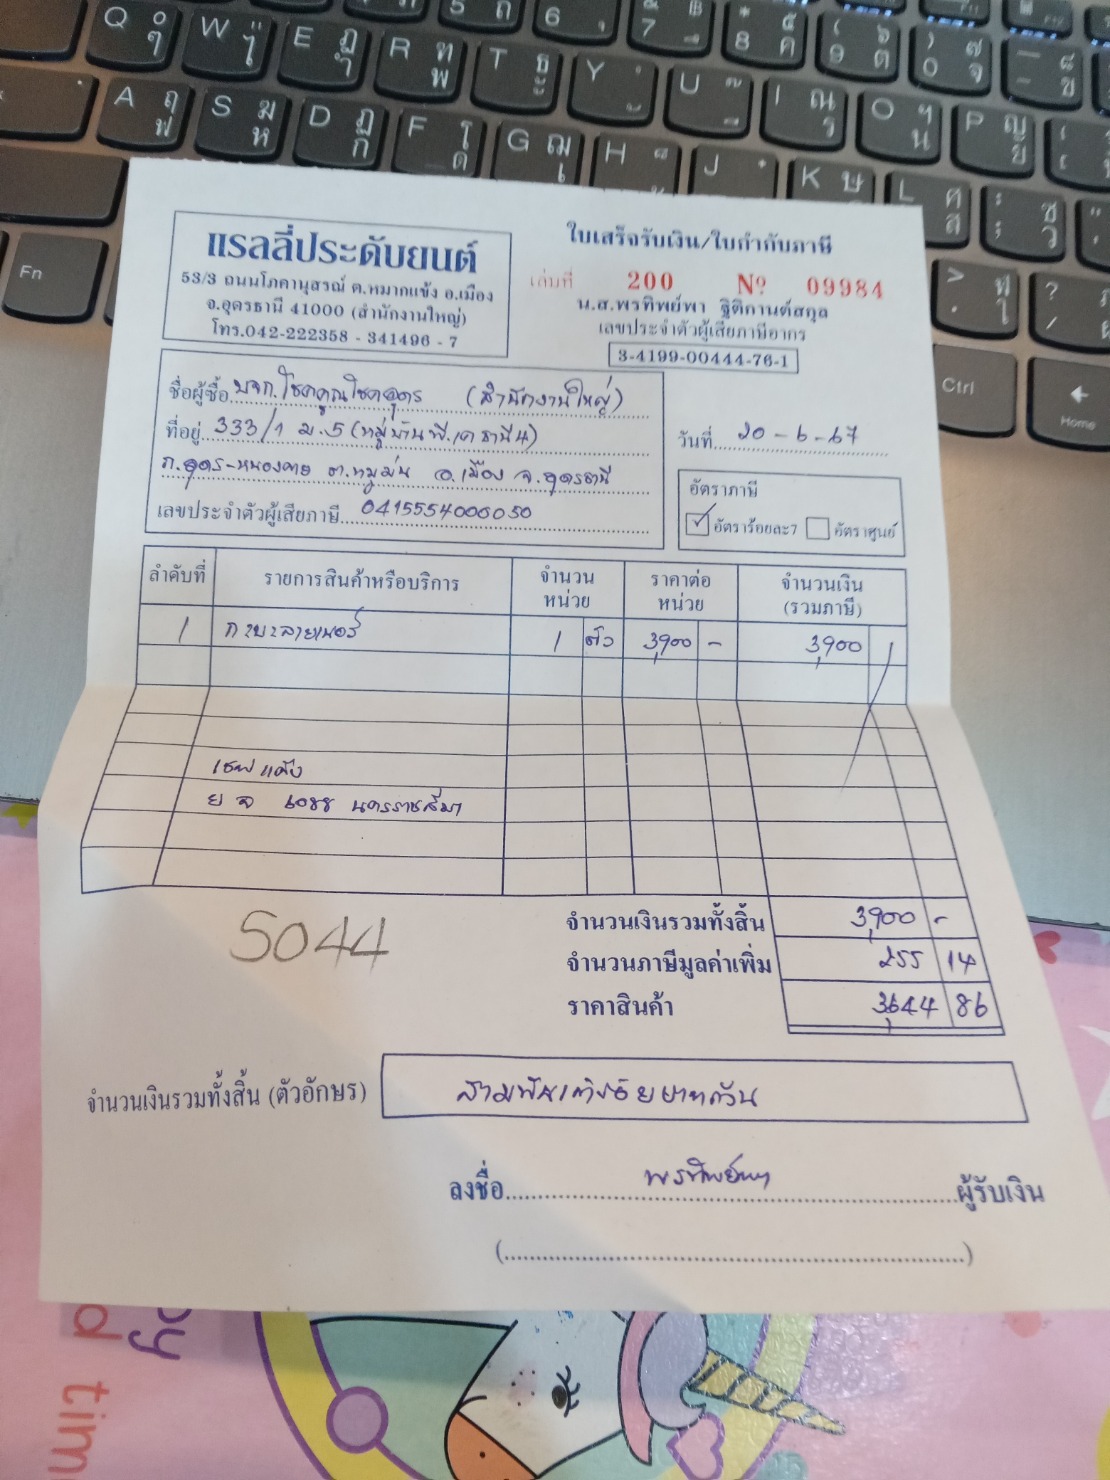 แรลลี่ประดับยนต์
53/3 ถนนโภคานุสรณ์ ต.หมากแข้ง อ.เมือง
จ.อุดรธานี 41000 (สำนักงานใหญ่)
โทร.042-222358 - 341496 - 7
ใบเสร็จรับเงิน/ใบกำกับภาษี
เล่มที่ 200 Nº 09984
น.ส.พรทิพย์พา ฐิติกานต์สกุล
เลขประจำตัวผู้เสียภาษีอากร
3-4199-00444-76-1
ชื่อผู้ซื้อ บจก.โชคคูณโชคอุดร (สำนักงานใหญ่)
ที่อยู่ 333/1 ม.5 (หมู่บ้านพี.เค ธานี 4)
ถ.อุดร-หนองคาย ต.หมูม่น อ.เมือง จ.อุดรธานี
เลขประจำตัวผู้เสียภาษี 0415554000050
วันที่ 20-6-67
อัตราภาษี
✓ อัตราร้อยละ7 อัตราศูนย์
ลำดับที่ รายการสินค้าหรือบริการ จำนวนหน่วย ราคาต่อหน่วย จำนวนเงิน (รวมภาษี)
1 กระบะลายเนอร์ 1 ตัว 3,900 - 3,900
เชฟ แค๊ป
ย จ 6088 นครราชสีมา
5044
จำนวนเงินรวมทั้งสิ้น 3,900 -
จำนวนภาษีมูลค่าเพิ่ม 255 14
ราคาสินค้า 3,644 86
จำนวนเงินรวมทั้งสิ้น (ตัวอักษร) สามพันเก้าร้อยบาทถ้วน
ลงชื่อ พรทิพย์พา ผู้รับเงิน
Q W E R T Y U I O P
A S D F G H J K L
Fn
Ctrl
Home